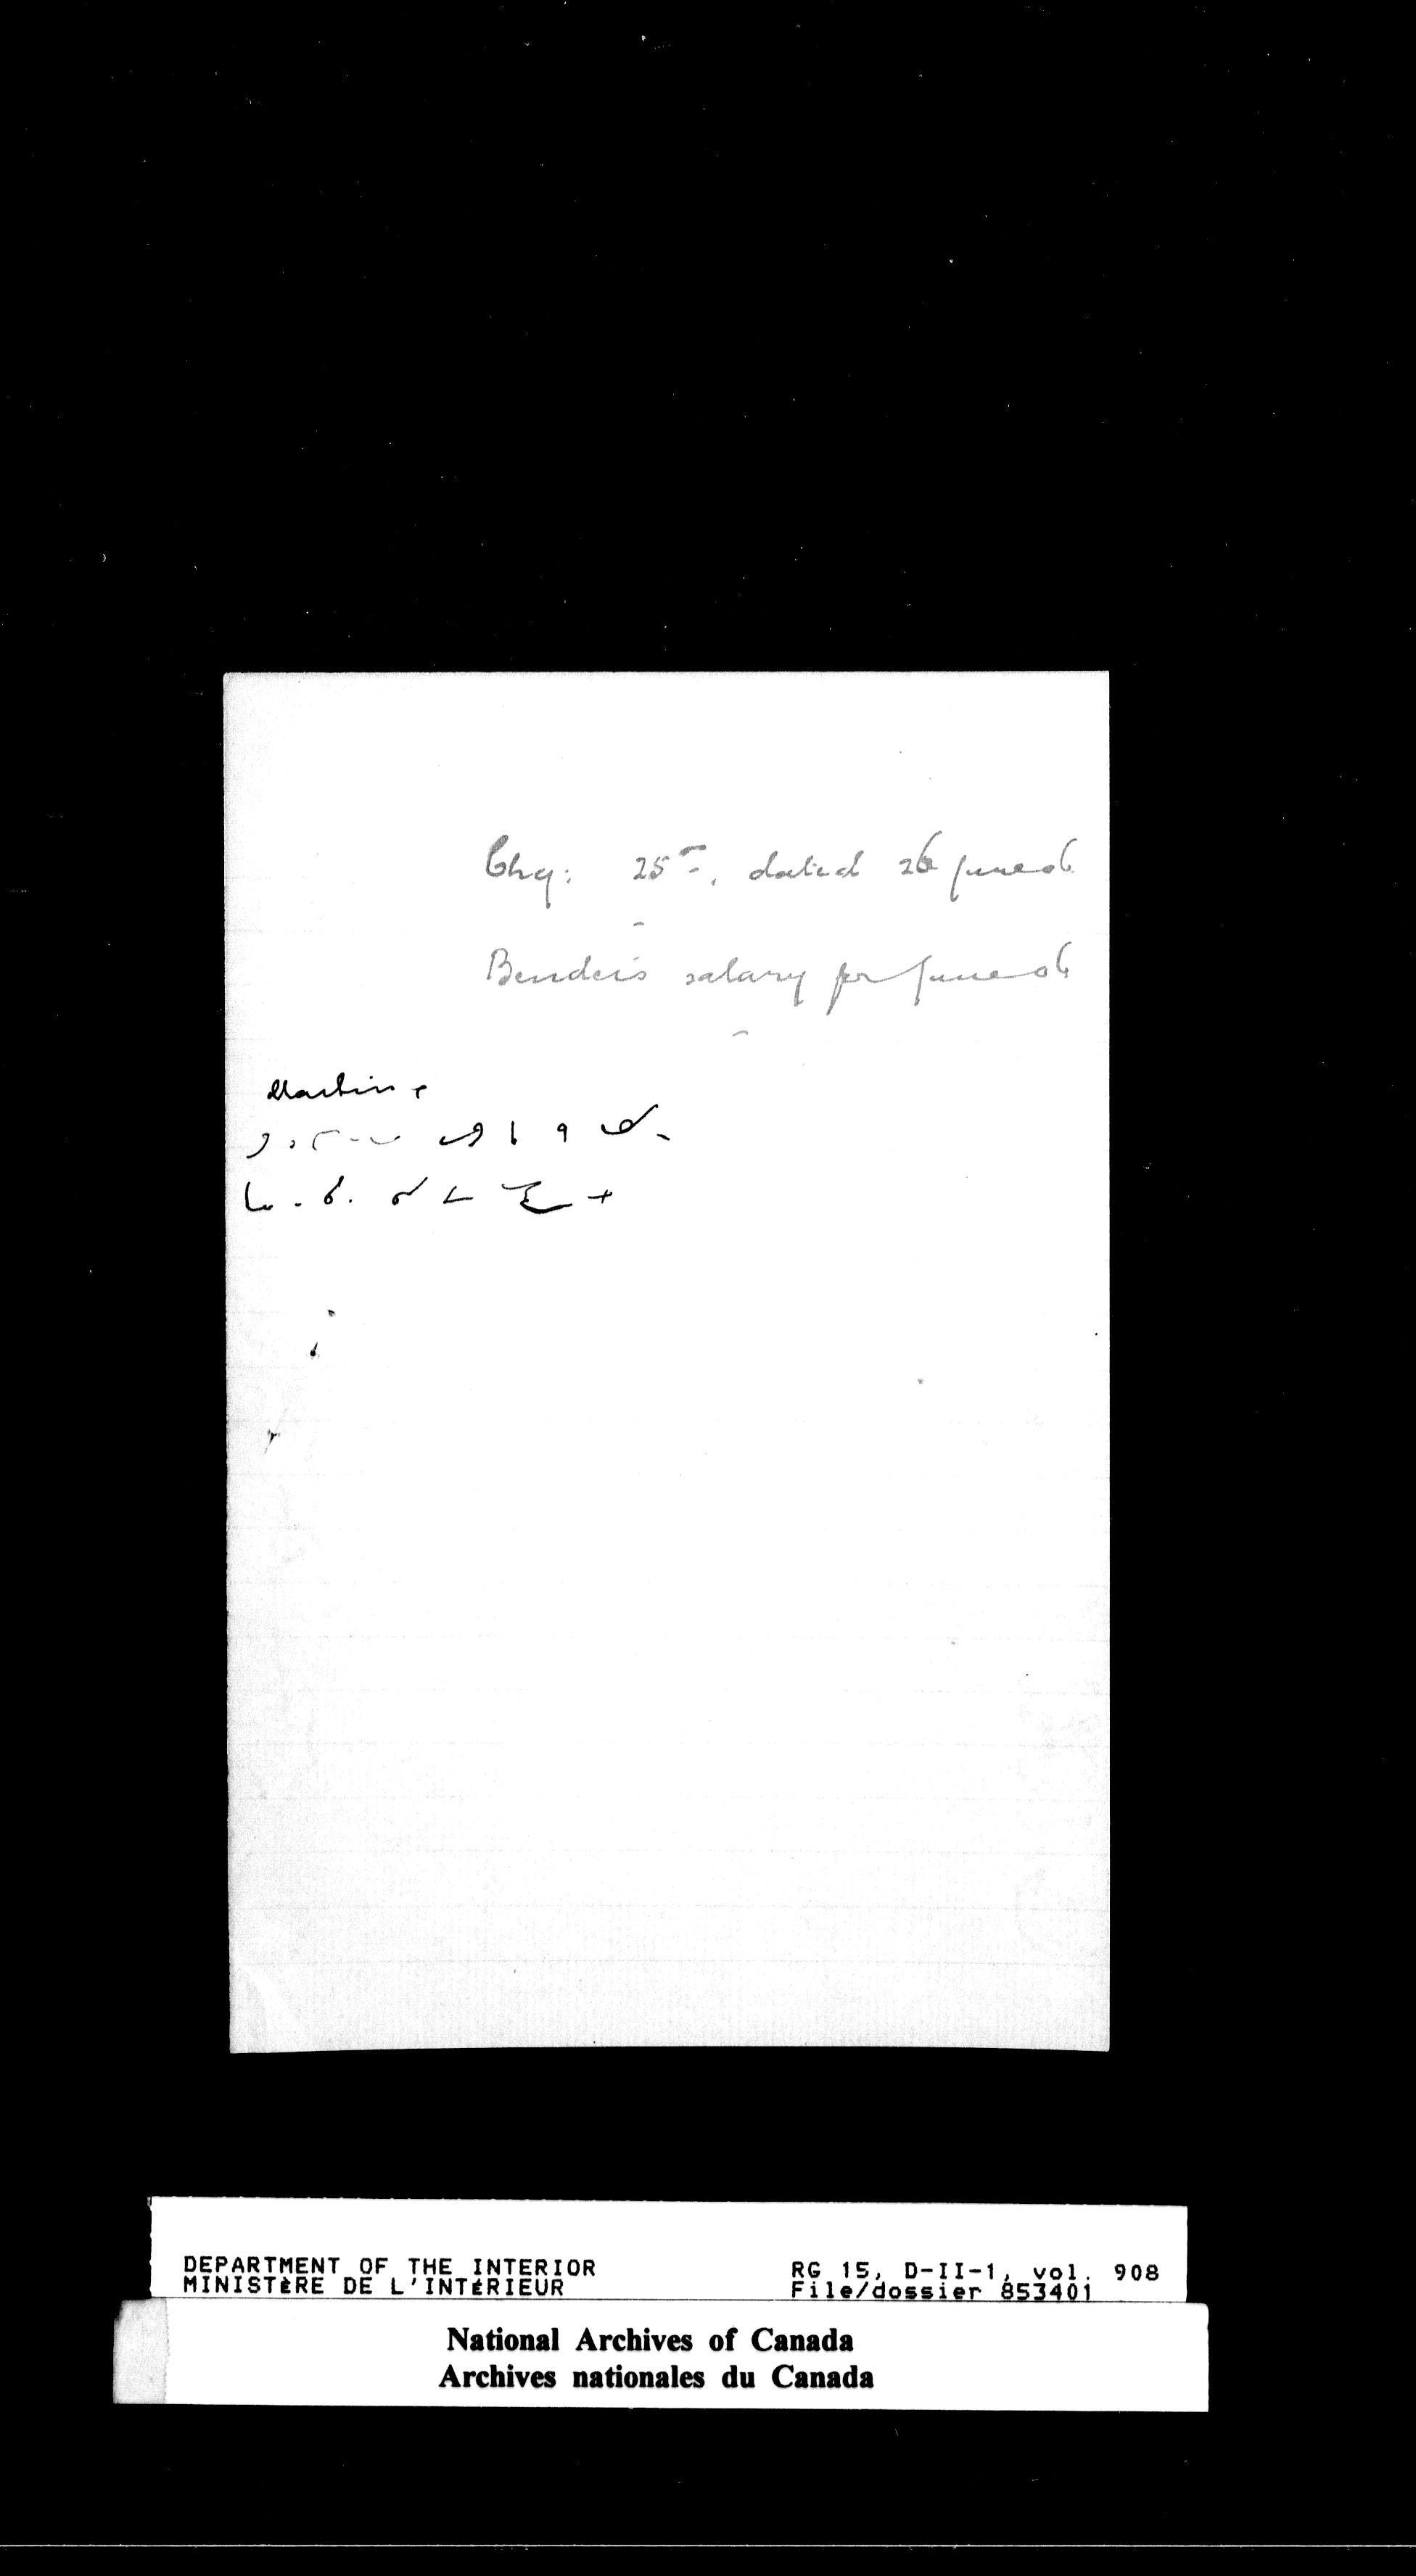 Chq: 25⁰⁰. dated 26 June 06
Bender's salary for June 06
DEPARTMENT OF THE INTERIOR
MINISTÈRE DE L'INTÉRIEUR
RG 15, D-II-1, vol. 908
File/dossier 853401
National Archives of Canada
Archives nationales du Canada